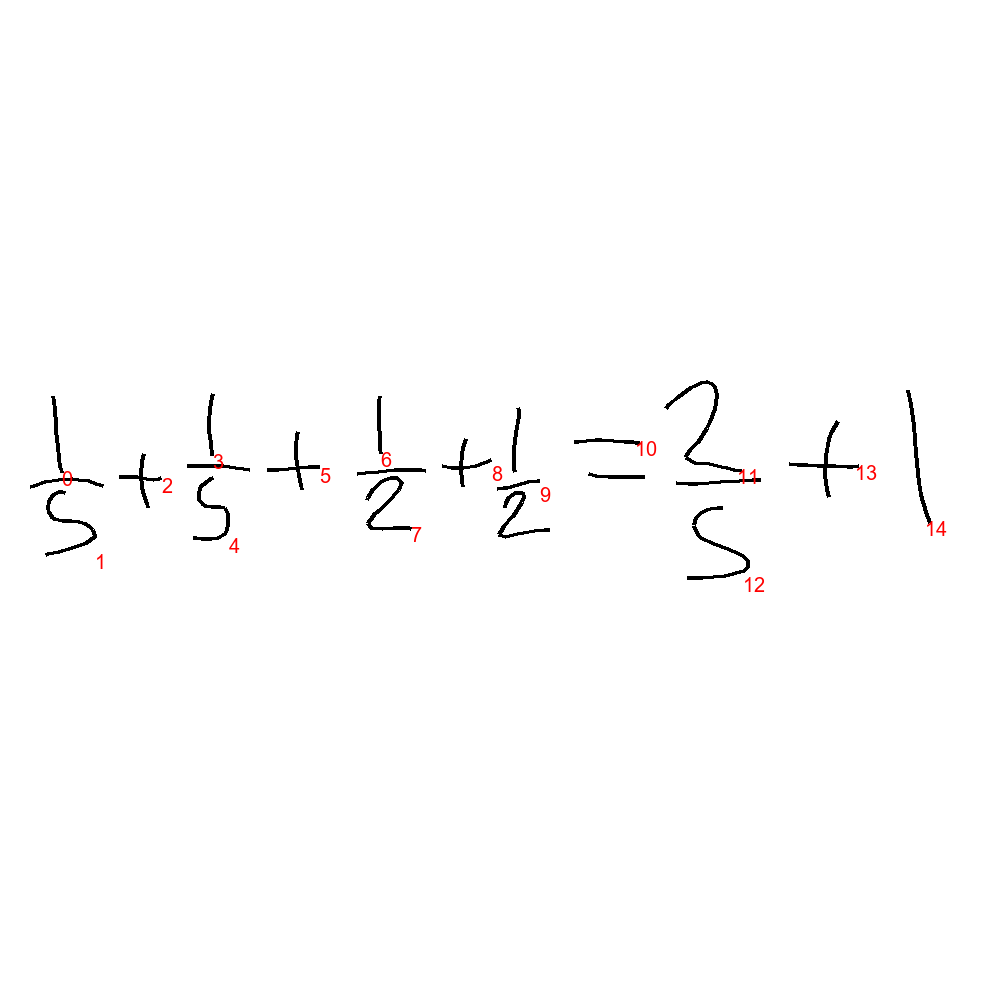 1/5 + 1/5 + 1/2 + 1/2 = 2/5 + 1
0 1 2 3 4 5 6 7 8 9 10 11 12 13 14